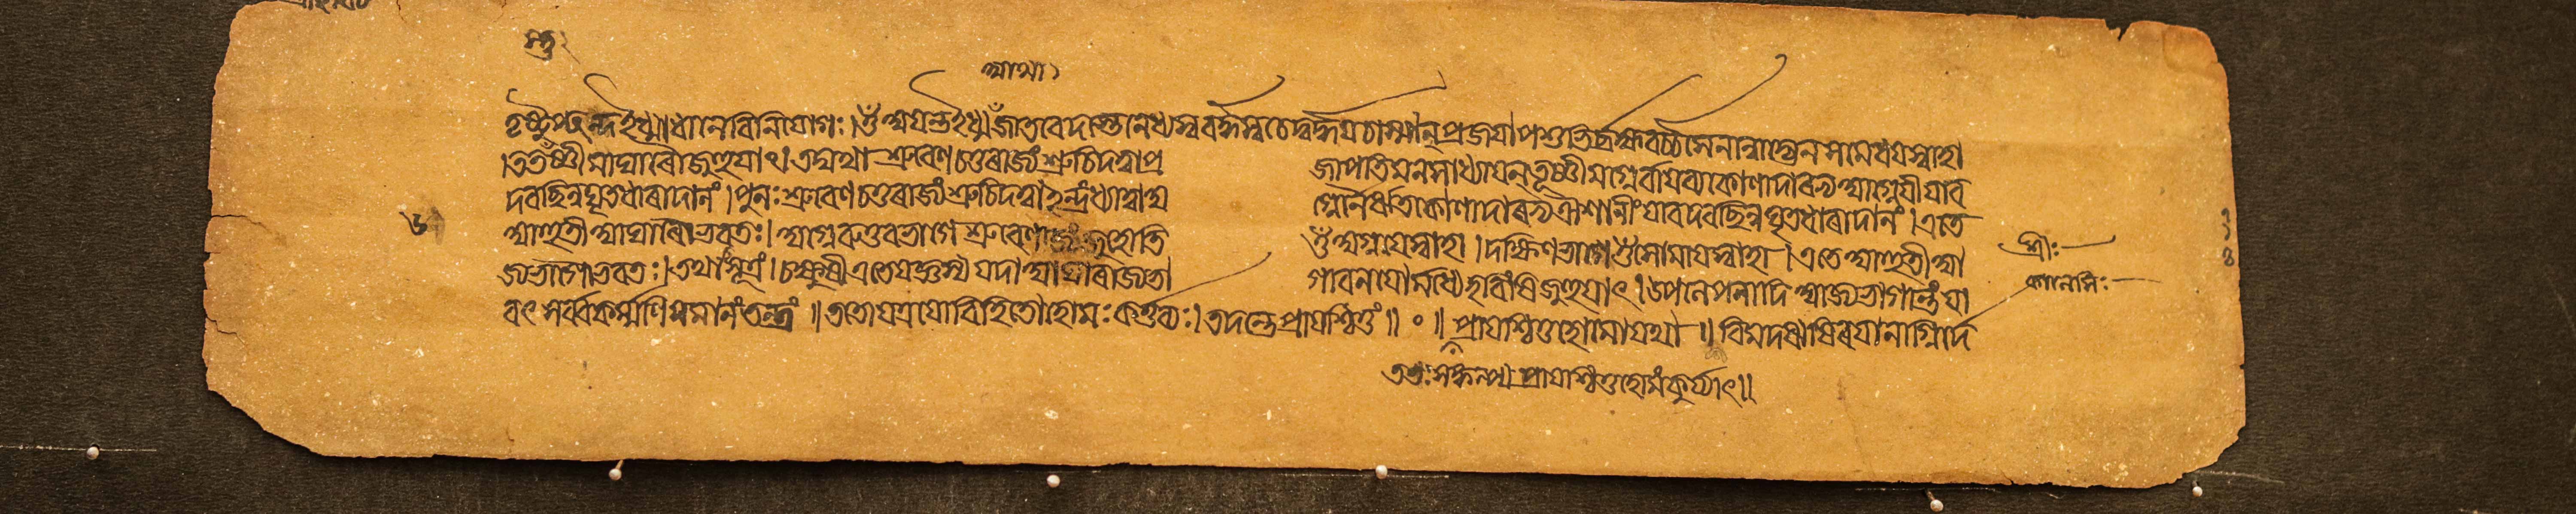 তৃষ্টুপ্ছন্দইধ্মাধানেবিনিযোগঃ।ওঁ অযন্তইধ্মআঁজাতবেদাস্তেনেধ্যস্ববর্দ্ধস্বচেদ্ধবর্দ্ধযচাস্মান্ প্রজযাপশুভির্ব্রহ্মবর্চসেনান্নাদ্যেনসমেধযস্বাহা
।ততঁস্তূষ্ণীমাঘাৰৌজুহুযাৎ।তদ্যথা শ্রুবেণচতুৰাজ্যং শ্রুচিদত্বাপ্র জাপতিংমনসাধ্যাযন্ তূষ্ণীমগ্নের্বাযব্যকোণাদাৰভ্যআগ্নেযীংযাব
দবছিন্নঘৃতধাৰাদানং।পুনঃ শ্রুবেণচতুৰাজ্যং শ্রুচিদত্বাইন্দ্রংধ্যাত্বাঅ গ্নের্নৈর্ঋতকোণাদাৰভ্যঐশানীংযাবদবছিন্নঘৃতধাৰাদানং।এতে
আহুতীআঘাৰৌভবতঃ।আগ্নেৰুত্তৰভাগে শ্রুবেণাজ্যংজুহোতি ওঁ অগ্নযেস্বাহা।দক্ষিণভাগে ওঁ সোমাযস্বাহা।এতেআহুতীআ
শ্রীঃ
জ্যভাগৌভবতঃ।তথাসূত্রং।চক্ষুষীএতেযজ্ঞস্যযদাআঘাৰাজ্যভা গাবনযোর্মধ্যেহবিংষিজুহুযাৎ।উপনেপনাদিআজ্যভাগান্তংযা
বৎ সর্ব্বকর্ম্মাণিসমানংতন্ত্রং॥ততোযত্রযোবিহিতোহোমঃকর্ত্তব্যঃ।তদন্তেপ্রাযশ্চিত্তং॥০॥প্রাযশ্চিত্তহোমোযথা॥বিমদঋষিৰযানাগ্নির্দে
ততঃসঙ্কল্প্য প্রাযশ্চিত্তহোমংকুর্য্যাৎ॥